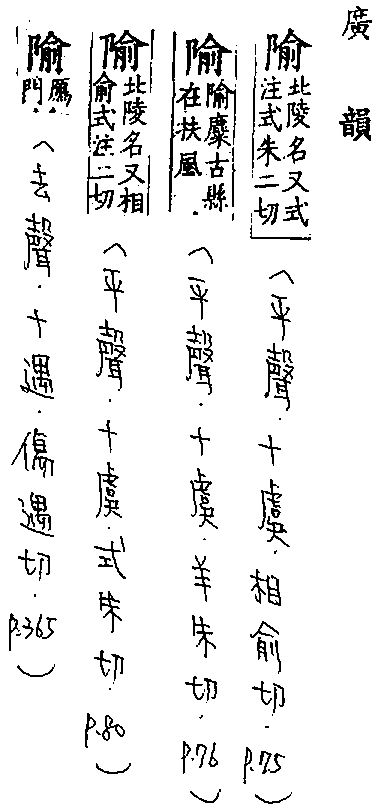 廣韻
隃 北陵名又式注式朱二切 (平聲.十虞.相俞切.p.75)
隃 隃麋古縣在扶風. (平聲.十虞.羊朱切.p.76)
隃 北陵名又相俞式注二切 (平聲.十虞.式朱切.p.80)
隃 鴈門. (去聲.十遇.傷遇切.p.365)